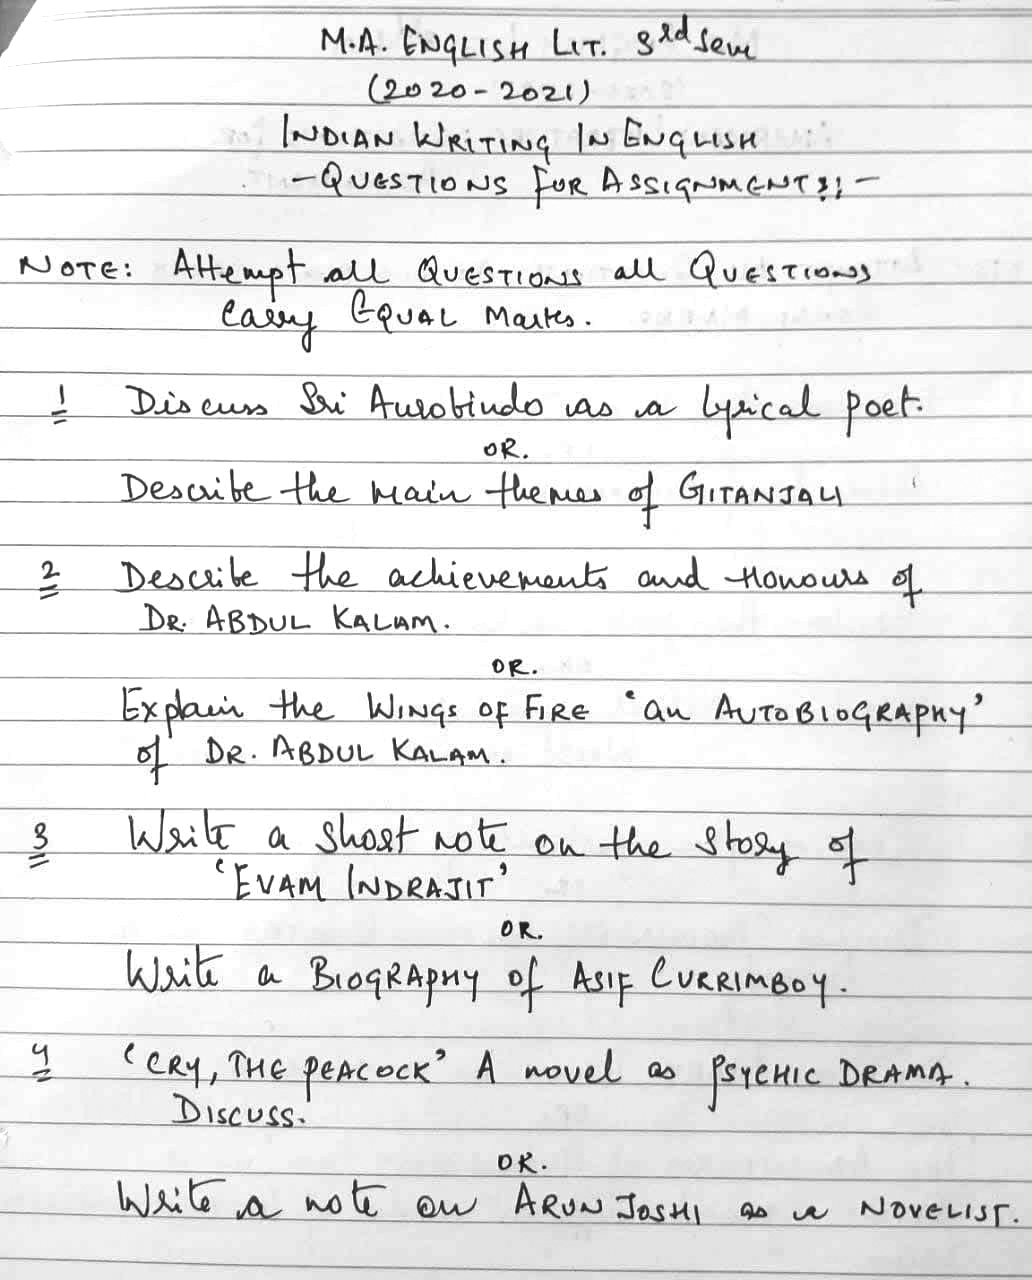 M.A. ENGLISH LIT. 3rd Sem
(2020-2021)
INDIAN WRITING IN ENGLISH
- QUESTIONS FOR ASSIGNMENT:; -
NOTE: Attempt all QUESTIONS all QUESTIONS
Carry EQUAL Marks.
1 Discuss Sri Aurobindo as a lyrical poet.
OR.
Describe the main themes of GITANJALI
2 Describe the achievements and Honours of
DR. ABDUL KALAM.
OR.
Explain the WINGS OF FIRE 'an AUTOBIOGRAPHY'
of DR. ABDUL KALAM.
3 Write a short note on the story of
'EVAM INDRAJIT'
OR.
Write a BIOGRAPHY of ASIF CURRIMBOY.
4 'CRY, THE PEACOCK' A novel as PSYCHIC DRAMA.
DISCUSS.
OR.
Write a note on ARUN JOSHI as a NOVELIST.